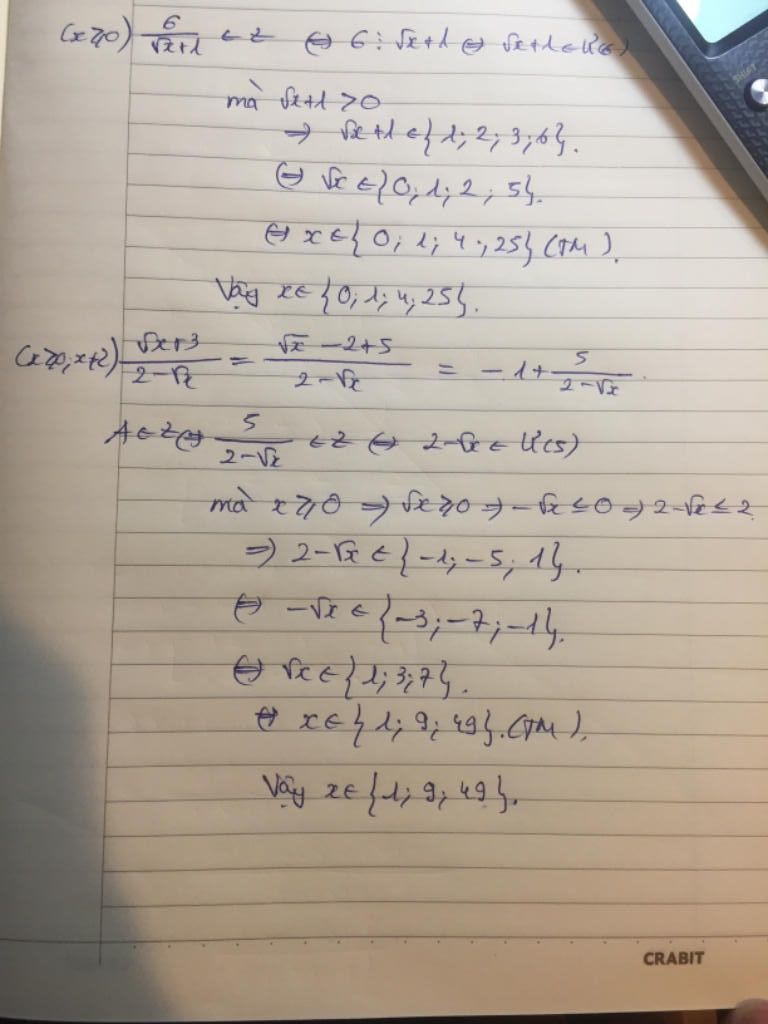 (x≥0) 6/(√x+1) ∈ Z ⇔ 6 ⋮ √x+1 ⇔ √x+1 ∈ Ư(6)
mà √x+1 >0
⇒ √x+1 ∈ {1; 2; 3; 6}.
⇔ √x ∈ {0; 1; 2; 5}.
⇔ x ∈ {0; 1; 4; 25} (TM).
Vậy x ∈ {0; 1; 4; 25}.
(x≥0; x≠2) (√x+3)/(2-√x) = (√x-2+5)/(2-√x) = -1 + 5/(2-√x).
A ∈ Z ⇔ 5/(2-√x) ∈ Z ⇔ 2-√x ∈ Ư(5)
mà x≥0 ⇒ √x≥0 ⇒ -√x ≤ 0 ⇒ 2-√x ≤ 2
⇒ 2-√x ∈ {-1; -5; 1}.
⇔ -√x ∈ {-3; -7; -1}.
⇔ √x ∈ {1; 3; 7}.
⇔ x ∈ {1; 9; 49}. (TM).
Vậy x ∈ {1; 9; 49}.
CRABIT
SHIFT